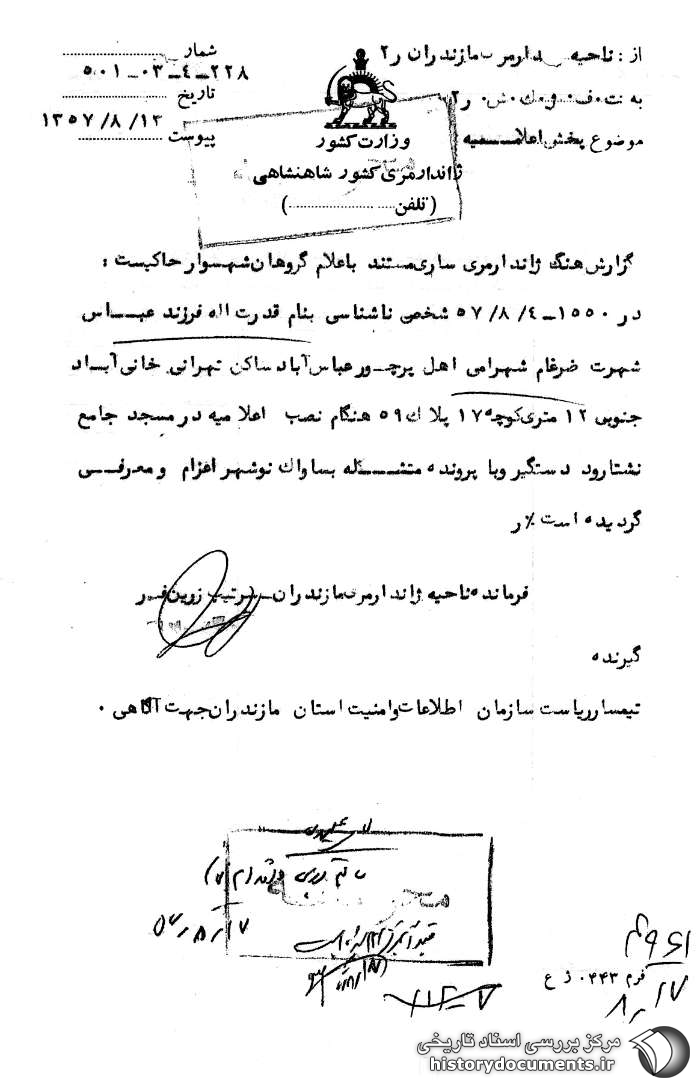 از : ناحیه دارمری مازندران ر۲
به
موضوع پخش اعلامیه
وزارت کشور
ژاندارمری کشور شاهنشاهی
(تلفن.......................)
شمار
۲۲۸ــ۴ــ۰۳ــ۵۰۱
تاریخ
۱۳۵۷/۸/۱۳
پیوست
گزارش هنگ ژاندارمری ساری مستند باعلام گروهان شهسوار حاکیست :
در ۱۵۵۰ــ۵۷/۸/۴ شخص ناشناسی بنام قدرت اله فرزند عباس
شهرت ضرغام شهرامی اهل پرچور عباس آباد ساکن تهرانی خانی آباد
جنوبی ۱۲ متری کوچه ۱۷ پلاک ۵۹ هنگام نصب اعلامیه در مسجد جامع
نشتارود دستگیر وبا پرونده متشکله بساواک نوشهر اعزام و معرفی
گردیده است٪ر
فرمانده ناحیه ژاندارمری مازندران ــ سرتیپ زوین فر
گیرنده
تیمسار ریاست سازمان اطلاعات وامنیت استان مازندران جهت آگاهی ۰
۵۷ر۸ر۱۷
فرم ۰۴۴۳ ژ ع
۸ر۱۷
مرکز بررسی اسناد تاریخی
historydocuments.ir